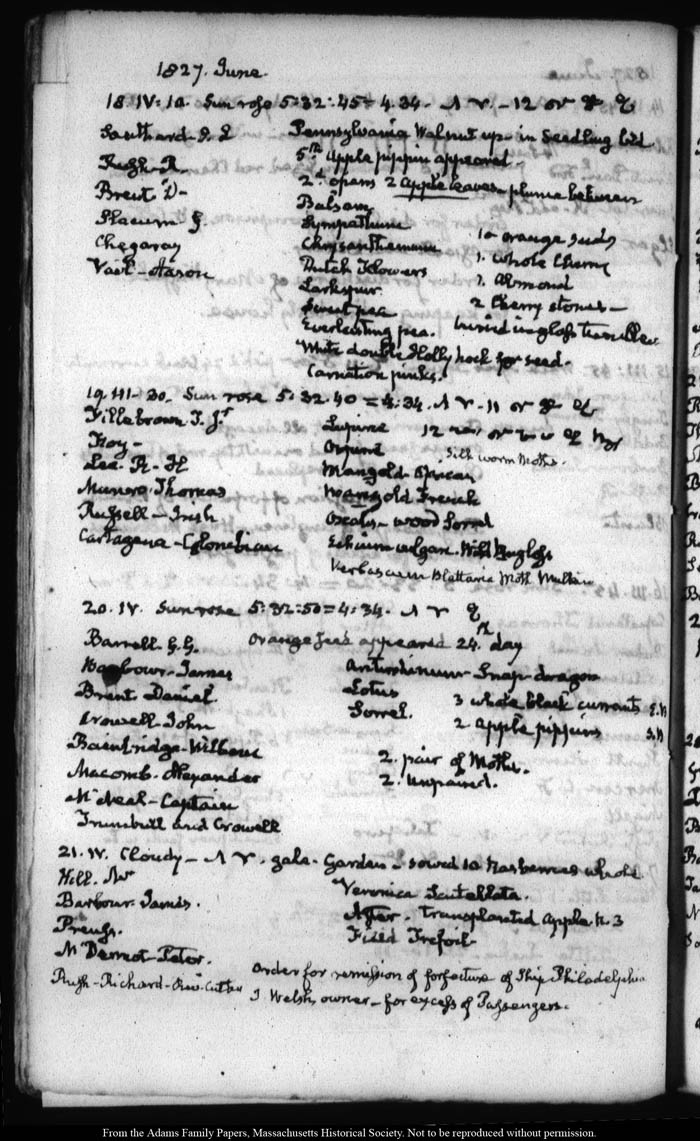 1827. June.
18. IV: 10. Sun rose 5:32:45 = 4.34. Λ V. - 12 or
Southard S. L Pennsylvania Walnut up in Seedling bed
Rush. R. 5th Apple pippin appeared.
Brent D- 2d opens 2 Apple leaves - plume between
Slacum G. Balsam
Chegaray Sympathium 10 orange seeds
Vail - Aaron Chrysanthemum 1. whole Cherry
Dutch Flowers 1. Almond
Larkspur. 2 Cherry stones -
Sweet pea buried in glass tumbler
Everlasting pea.
White double Hollyhock for seed.
Carnation pinks.
19. III - 30. Sun rose 5:32.40 = 4:34. Λ V - 11 or
Fillebrown T. Jr Lupine 12
Foy - Orpine Silk worm Moths.
Lee. R. H Marigold African
Munro Thomas Marigold French
Russell - Irish Oxalis - wood Sorrel
Cartagena - Colombian Echium vulgare. Wild Bugloss
Verbascum Blattaria Moth Mullein
20. IV. Sun rose 5:32:50 = 4:34. Λ V
Barrell G. G. Orange seed appeared 24th day
Barbour - James Antirrhinum Snap-dragon
Brent Daniel Lotus 3 whole black currants E.N
Crowell John Sorrel. 2 apple pippins S.N
Bainbridge - William
Macomb - Alexander 2. pair of Moths.
McNeal - Captain 2. Unpaired.
Trumbull and Crowell
21. IV. Cloudy - Λ V. gale - Garden - sowed 10 Rasberries whole
Hill. Mr Veronica Scutellata.
Barbour James. After. transplanted Apple N. 3
Preuss. Field Trefoil
McDermot - Peter.
Rush - Richard - Rev. Cutter Order for remission of forfeiture of Ship Philadelphia
J Welsh, owner - for excess of Passengers.
From the Adams Family Papers, Massachusetts Historical Society. Not to be reproduced without permission.